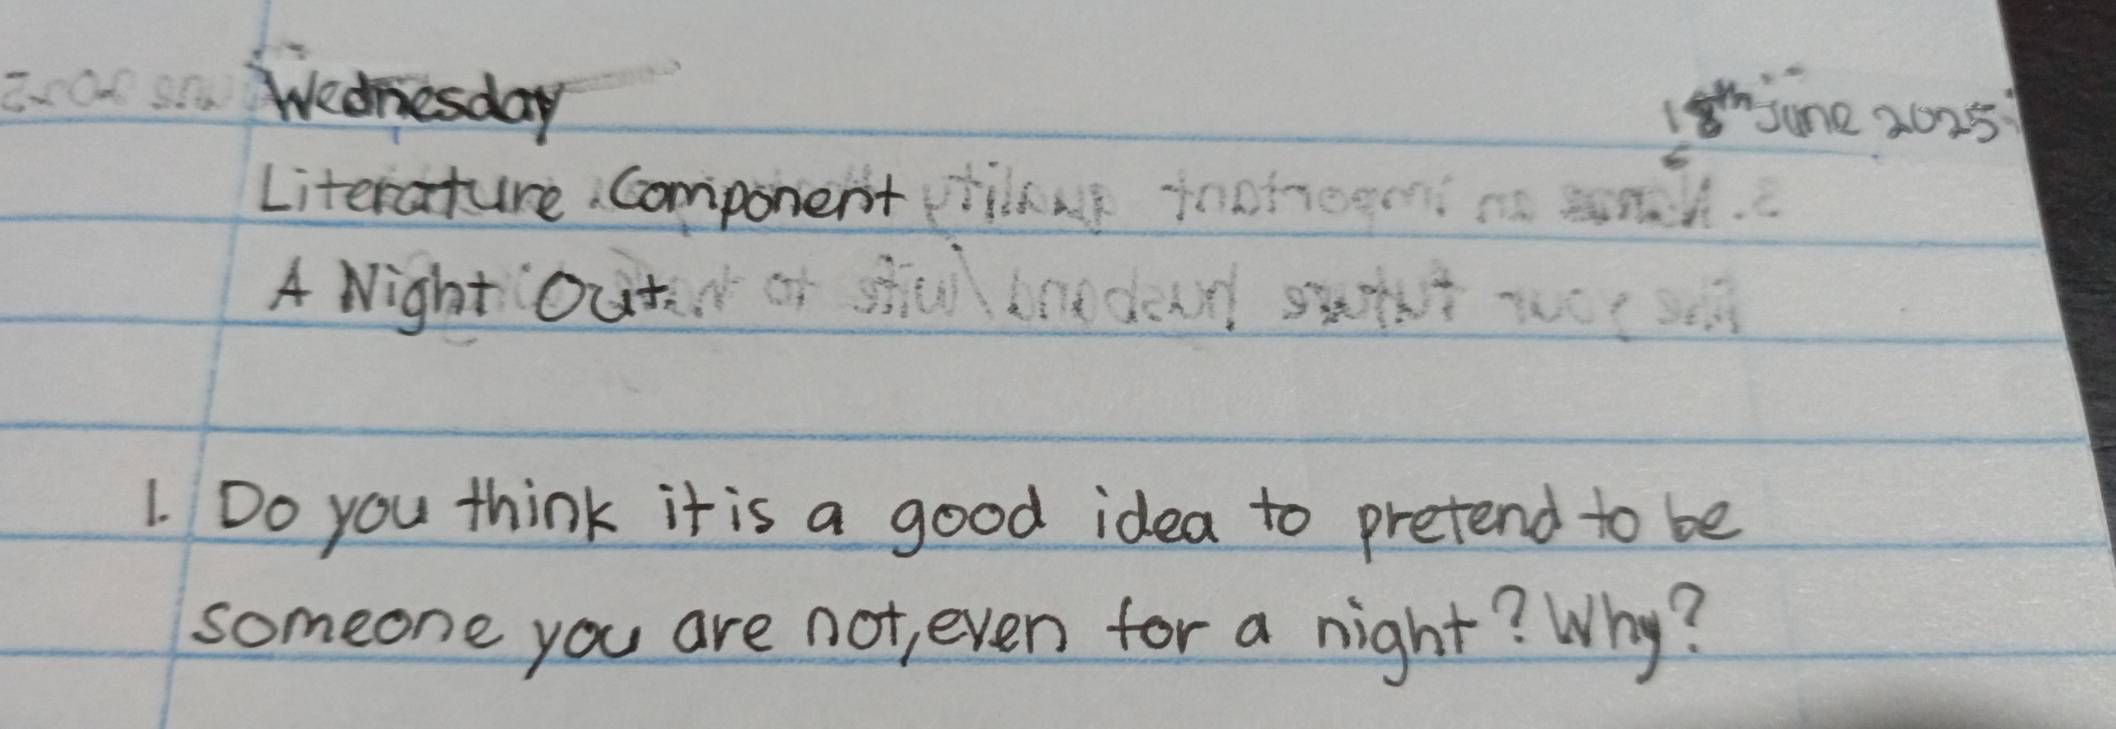 Wednesday 18th June 2025
Literature Component
A Night Out
1. Do you think it is a good idea to pretend to be
someone you are not, even for a night? Why?